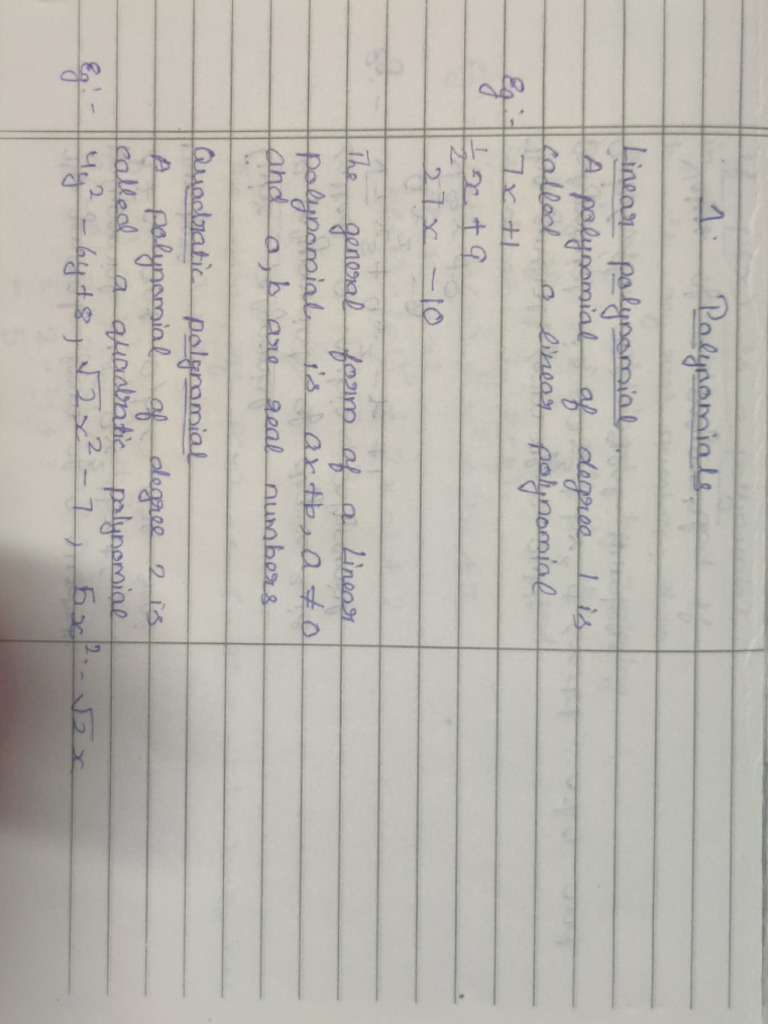 1. Polynomials
Linear polynomial
A polynomial of degree 1 is
called a linear polynomial
Eg:- 7x+1
1/2 x + 9
27x - 10
The general form of a Linear
polynomial is ax+b, a ≠ 0
and a, b are real numbers
Quadratic polynomial
A polynomial of degree 2 is
called a quadratic polynomial
Eg:- 4y² - 6y+8, √2x² - 7, 5x² - √2x